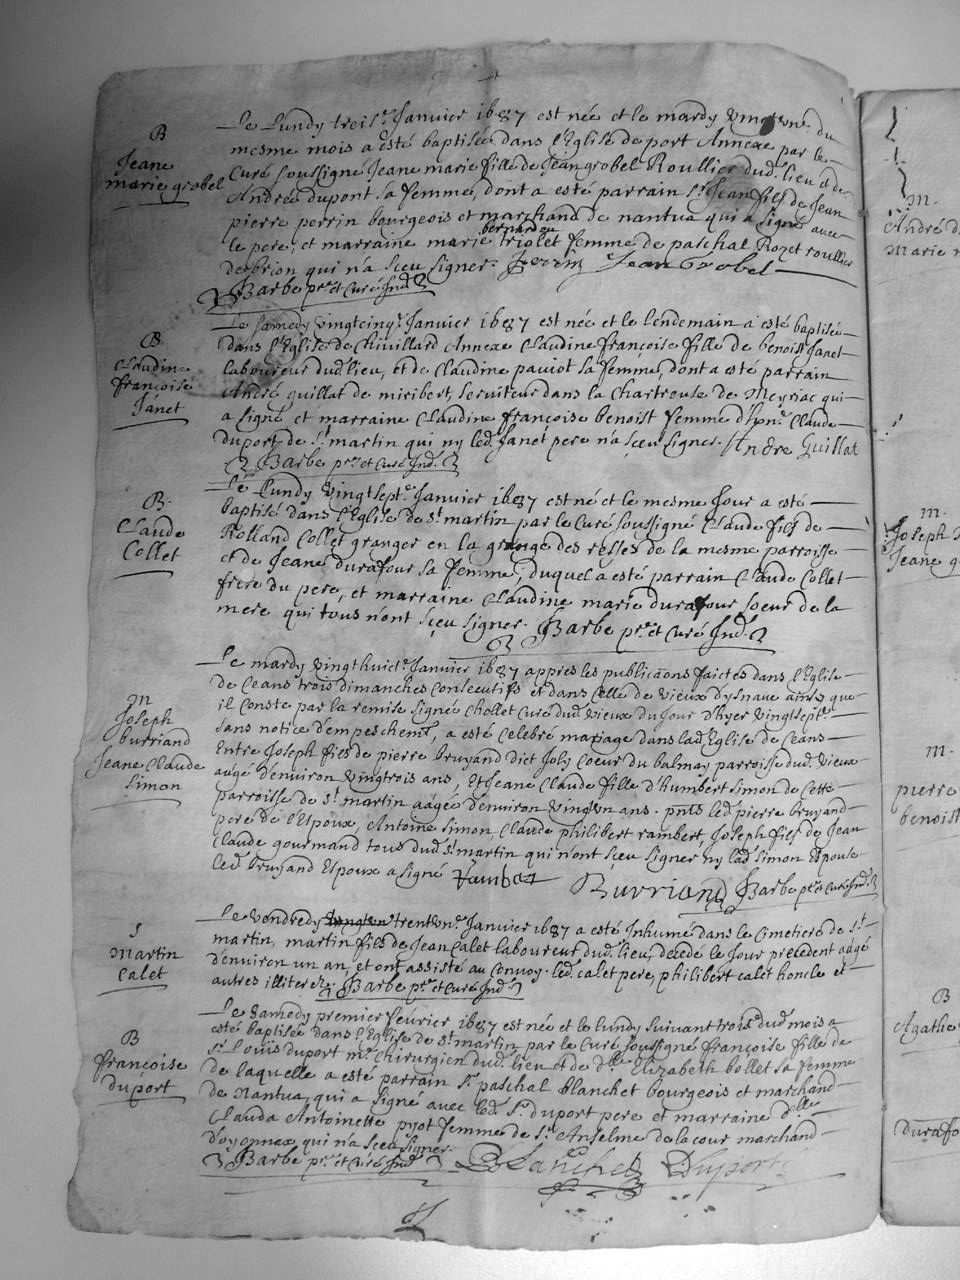 B
Jeane
marie grobel
Le Lundy treise Janvier 1687 est née et le mardy vingt un du
mesme mois a esté baptisée dans l'Eglise de port Annexe par le
Curé soussigné Jeane marie fille de Jean grobel Roullier dud. lieu et de
Andréé dupont sa femme, dont a esté parrain Sr. Jean fils de Jean
pierre perrin bourgeois et marchand de nantua qui a signé avec
bernardon
le pere, et marraine marie triolet femme de paschal Rozet roullier
de brion qui n'a sceu signer. Perrin Jean Grobel
Barbe ptre. et Curé Ind.
B
Claudine
françoise
Janet
Le samedy vingtcinq. Janvier 1687 est née et le lendemain a esté baptisée
dans l'Eglise de Chivillard Annexe Claudine françoise fille de benoist Janet
laboureur dud. lieu, et de Claudine paviot sa femme, dont a esté parrain
André guillat de miribert, serviteur dans la Chartreuse de Meyriac qui
a signé et marraine Claudine françoise benoist femme d'hon. Claude
duport de St. martin qui ny led. Janet pere n'a sceu signer. Andre Guillat
Barbe ptre. et Curé Ind.
B.
Claude
Collet
Le Lundy vingtsept. Janvier 1687 est né et le mesme Jour a esté
baptisé dans l'Eglise de St. martin par le Curé soussigné Claude fils de
Rolland Collet granger en la grange des resses de la mesme parroisse
et de Jeane durafour sa femme, duquel a esté parrain Claude Collet
frere du pere, et marraine Claudine marie durafour soeur de la
mere qui tous n'ont sceu signer. Barbe ptre. et Curé Ind.
m
Joseph
burriand
Jeane Claude
Simon
Le mardy vingthuict. Janvier 1687 appres les publicaons faictes dans l'Eglise
de Ceans trois dimanches consecutifs et dans Celle de vieux d'ysnave ainsy que
il conste par la remise signée Chollet Curé dud. vieux du Jour d'hyer vingtsept.
sans notice d'empeschemt., a esté celebré mariage dans lad. Eglise de Ceans
Entre Joseph fils de pierre bruyand dict Joly Coeur du balmay parroisse dud. vieux
aagé d'environ vingtrois ans, et Jeane Claude fille d'humbert simon de Cette
parroisse de St. martin aagée d'environ vingt un ans. pnts led. pierre bruyand
pere de l'Espoux, Antoine simon Claude philibert rambert, Joseph fils de Jean
Claude gourmand tous dud. St. martin qui n'ont sceu signer ny lad. simon Espouse
led. bruyand Espoux a signé Burriand Barbe ptre. et Curé Ind.
S
Martin
Calet
Le vendredy trent un. Janvier 1687 a esté Inhumé dans le Cimetiere de St.
martin, martin fils de Jean Calet laboureur dud. lieu, decedé le Jour precedent aagé
d'environ un an, et ont assisté au Convoy led. Calet pere, philibert calet honcle et
autres illiterez. Barbe ptre. et Curé Ind.
B
françoise
duport
Le samedy premier fevrier 1687 est née et le lundy suivant trois dud. mois a
esté baptisée dans l'Eglise de St. martin par le Curé soussigné françoise fille de
Sr. Louis duport me. Chirurgien dud. lieu et de dlle. Elizabeth bollet sa femme
de laquelle a esté parrain Sr. paschal blanchet bourgeois et marchand
de Nantua, qui a signé avec led. Sr. duport pere et marraine dlle.
Clauda Antoinette pyot femme de Sr. Anselme de la cour marchand
d'oyonnax qui n'a sceu signer.
Barbe ptre. et Curé Ind. Blanchet Duport
m.
André
marie
m.
Joseph
Jeane
m.
pierre
benoist
B
Agathe
durafo